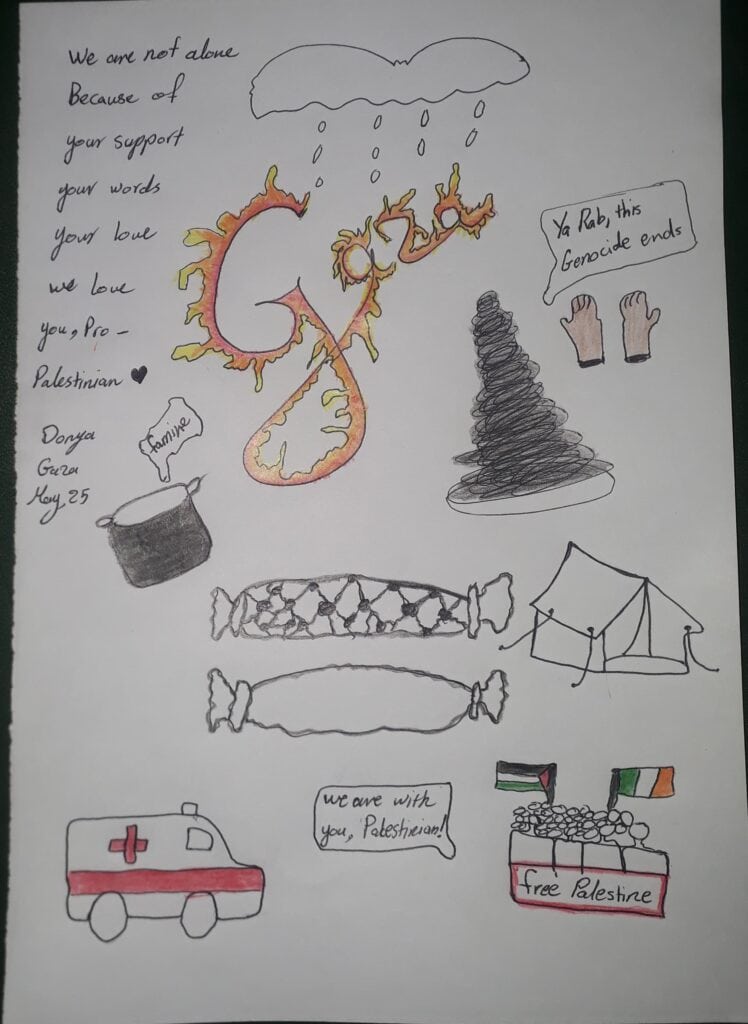 We are not alone
Because of
your support
your words
your love
we love
you, Pro-
Palestinian ♥
Donya
Gaza
May 25
Gaza
Ya Rab, this
Genocide ends
famine
we are with
you, Palestinian!
free Palestine